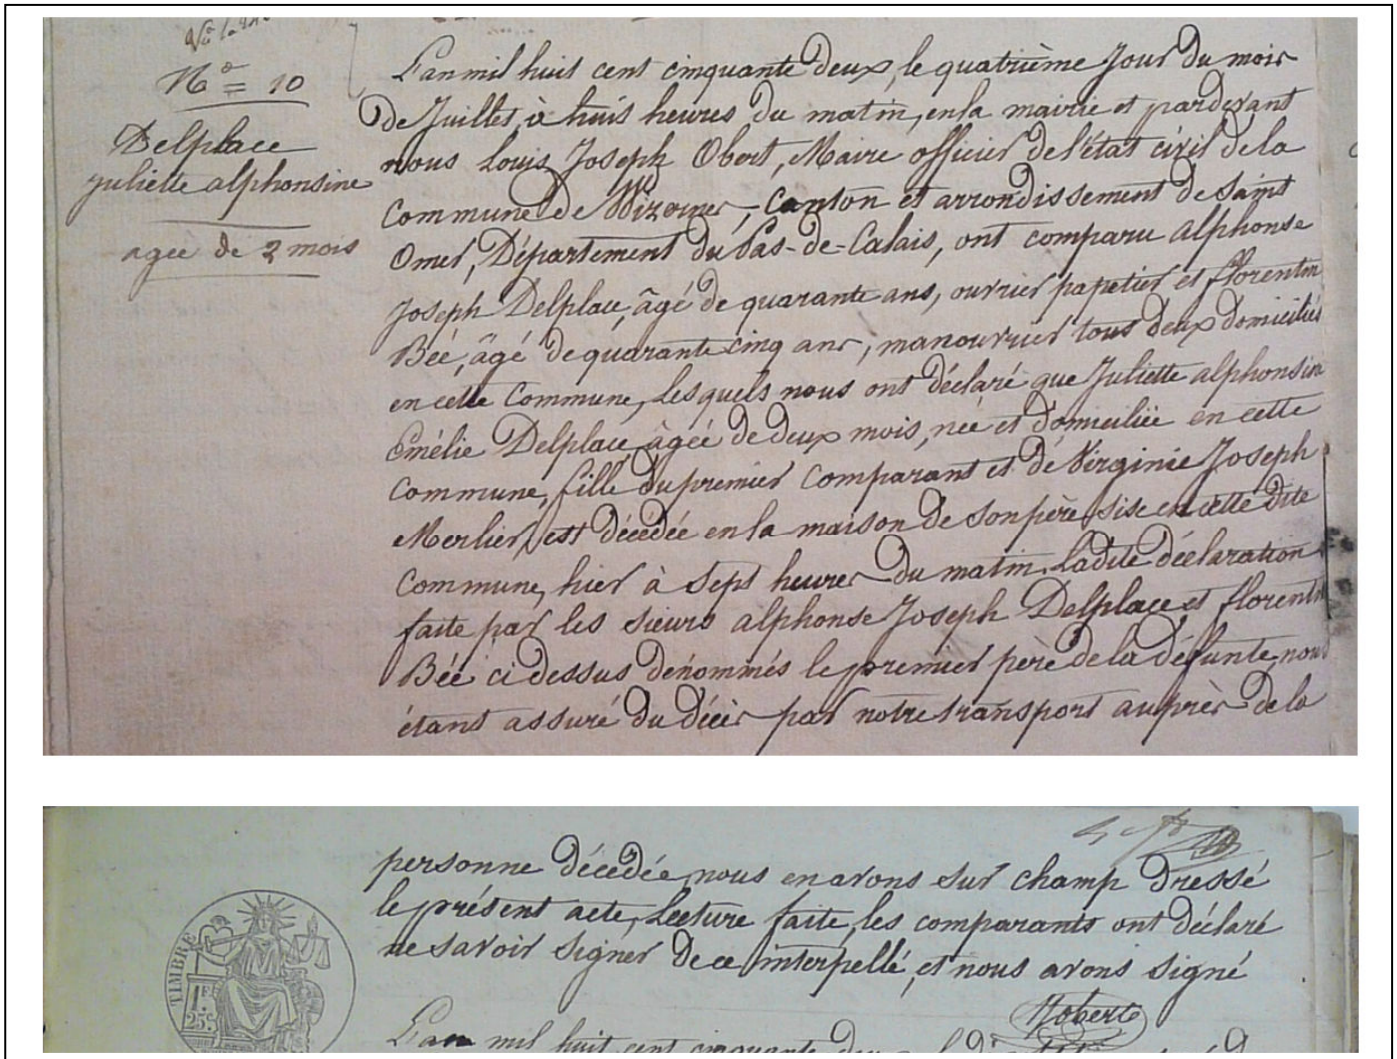 N° = 10
Delplace
juliette alphonsine
agée de 2 mois
L'an mil huit cent cinquante deux, le quatrième Jour du mois
de Juillet, à huit heures du matin, en la mairie et pardevant
nous Louis Joseph Obert, Maire officier de l'état civil de la
Commune de Wizernes, Canton et arrondissement de Saint
Omer, Département du Pas-de-Calais, ont comparu Alphonse
Joseph Delplace, âgé de quarante ans, ouvrier papetier et florentin
Bée, âgé de quarante cinq ans, manouvrier tous deux domiciliés
en cette Commune, Lesquels nous ont déclaré que Juliette alphonsine
Emélie Delplace, âgée de deux mois, née et domiciliée en cette
Commune, fille du premier Comparant et de Virginie Joseph
Merlier, est décédée en la maison de son père, sise en cette dite
Commune, hier à Sept heures du matin. Ladite déclaration
faite par les sieurs alphonse Joseph Delplace et florentin
Bée ci dessus dénommés le premier père de la défunte, nous
étant assuré du décès par notre transport auprès de la
personne décédée, nous en avons sur champ dressé
le présent acte, Lecture faite, les comparants ont déclaré
ne savoir signer de ce interpellé, et nous avons signé
TIMBRE
1F
25c
L'an mil huit cent cinquante